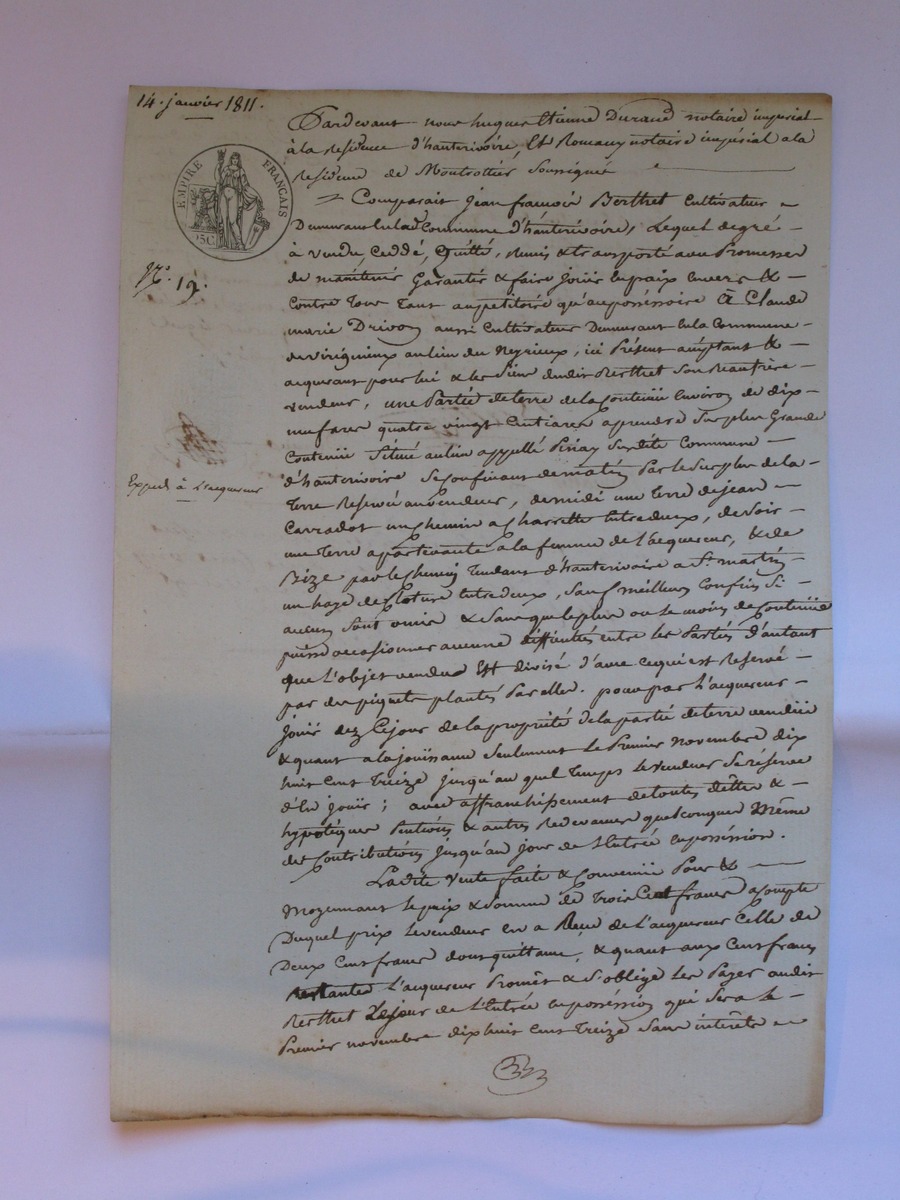 14. janvier 1811.
EMPIRE FRANÇAIS
75C
N.º 19.
Exped. à l'acquereur
Pardevant nous hugues Etienne Durand notaire imperial
à la Residence d'hauterivoire, Et Romany notaire impérial a la
Residence de Montrottier Soussigné
Comparait jean francois Berthet Cultivateur
Demeurant en lad. Commune d'hauterivoire, Lequel de gré
à vendu, Ceddé, Quitté, Remis & transporté avec Promesse
de maintenir Garantir & faire jouir en paix envers &
Contre Tous Tant au petitoire qu'au possessoire à Claude
marie Drivon aussi Cultivateur Demeurant en la Commune
de virigneux au lieu du Neyrieux, ici Présent acceptant &
acquerant pour lui & les Siens dudit Berthet Son Beaufrère
vendeur, une Partie de terre de la Contenue Environ de dix
neuf ares quatre vingt Centiares a prendre Sur plus Grande
Contenue Situé au lieu appellé Pinay Susdite Commune
d'hauterivoire Se Confinant de matin Par le Surplus de la
Terre Reservée au vendeur, de midi une Terre de jean
Carradot un Chemin a Charrette Entredeux, de Soir
une Terre apartenante a la femme de l'acquereur, & de
Bize par le Chemin Tendant d'hauterivoire a St. martin
un haye de Cloture Entredeux, Sauf meilleurs Confins Si
aucuns Sont omis & Sans que le plus ou le moins de Contenue
puisse occasionner aucune difficultés entre les Parties d'autant
que l'objet vendu Est divisé d'avec ce qui est Reservé
par des piquets plantés Par elles. pour par l'acquereur
jouir dez Ce jour de la propriété de la partie de terre vendue
& quant a la jouissance Seulement le Premier Novembre dix
huit Cent Treize jusqu'au quel Temps le vendeur Se réserve
d'En jouir; avec affranchissement de toutes dettes &
hypotèques Pentions & autres Redevances quelconques Même
des Contributions jusqu'au jour de l'Entrée en possession.
Ladite vente faite & Convenue Pour &
Moyennant le prix & Somme de Trois Cent francs a compte
Duquel prix le vendeur en a Reçu de l'acquereur Celle de
Deux Cent francs dont quittance, & quant aux Cent francs
Restantes l'acquereur Promet & S'oblige Les Payer audit
Berthet Le jour de l'Entrée en possession qui Sera le
Premier novembre dix huit cent treize Sans interêts